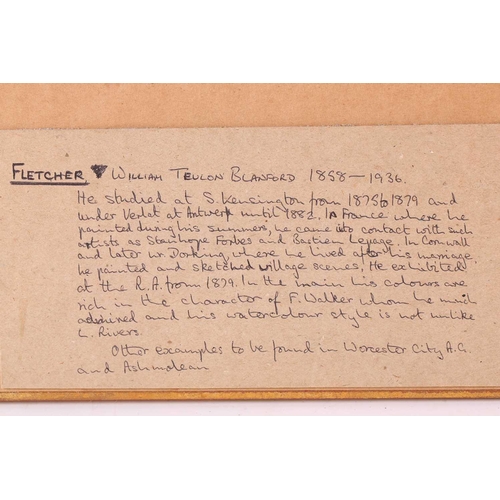 FLETCHER WILLIAM TEULON BLANFORD 1858-1936.
He studied at S. Kensington from 1875 to 1879 and
under Verlat at Antwerp until 1882. In France where he
painted during his summers, he came into contact with such
artists as Stanhope Forbes and Bastien Lepage. In Cornwall
and later nr. Dorking where he lived after his marriage
he painted and sketched village scenes. He exhibited
at the R.A. from 1879. In the main his colours are
rich in the character of F. Walker whom he much
admired and his watercolour style is not unlike
L. Rivers.
Other examples to be found in Worcester City A.G.
and Ashmolean